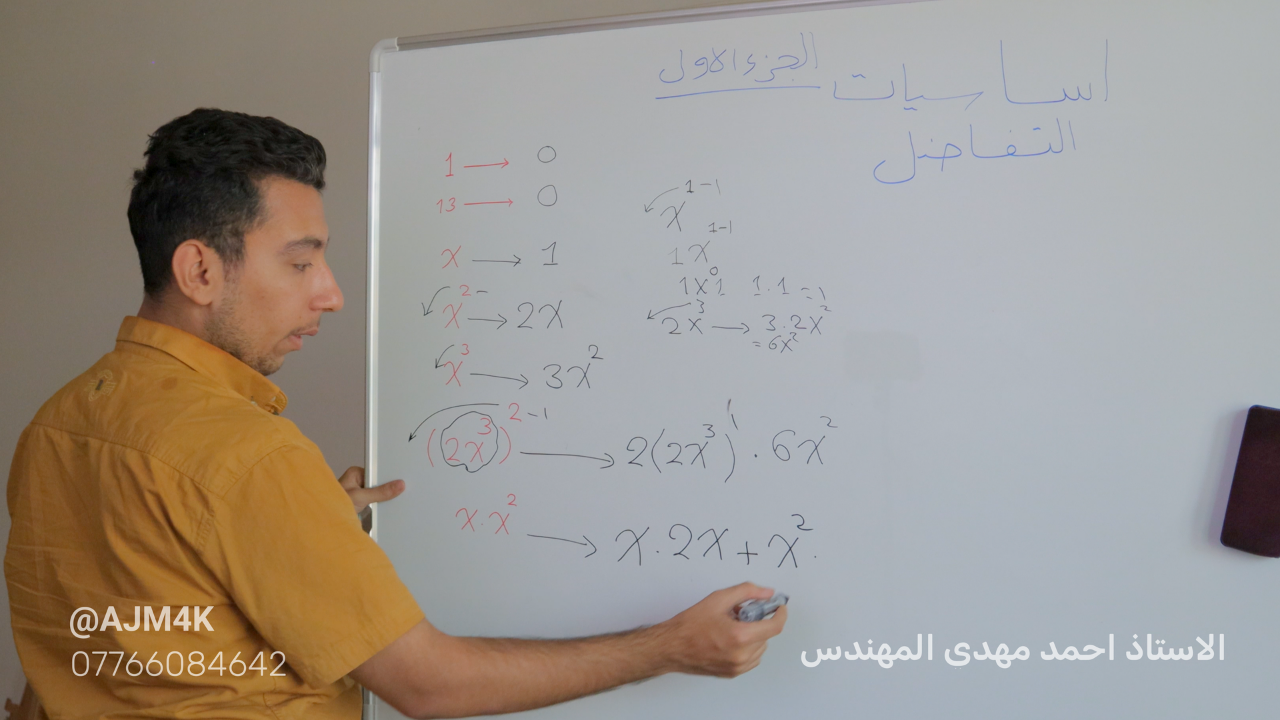 اساسيات الجزء الاول
التفاضل
1 → 0
13 → 0
x → 1
x²⁻ → 2x
x³ → 3x²
(2x³)²⁻¹ → 2(2x³)¹ · 6x²
x · x² → x · 2x + x² ·
x¹⁻¹
1x¹⁻¹
1x⁰ 1 1 · 1 = 1
2x³ → 3 · 2x²
= 6x²
@AJM4K
07766084642
الاستاذ احمد مهدي المهندس